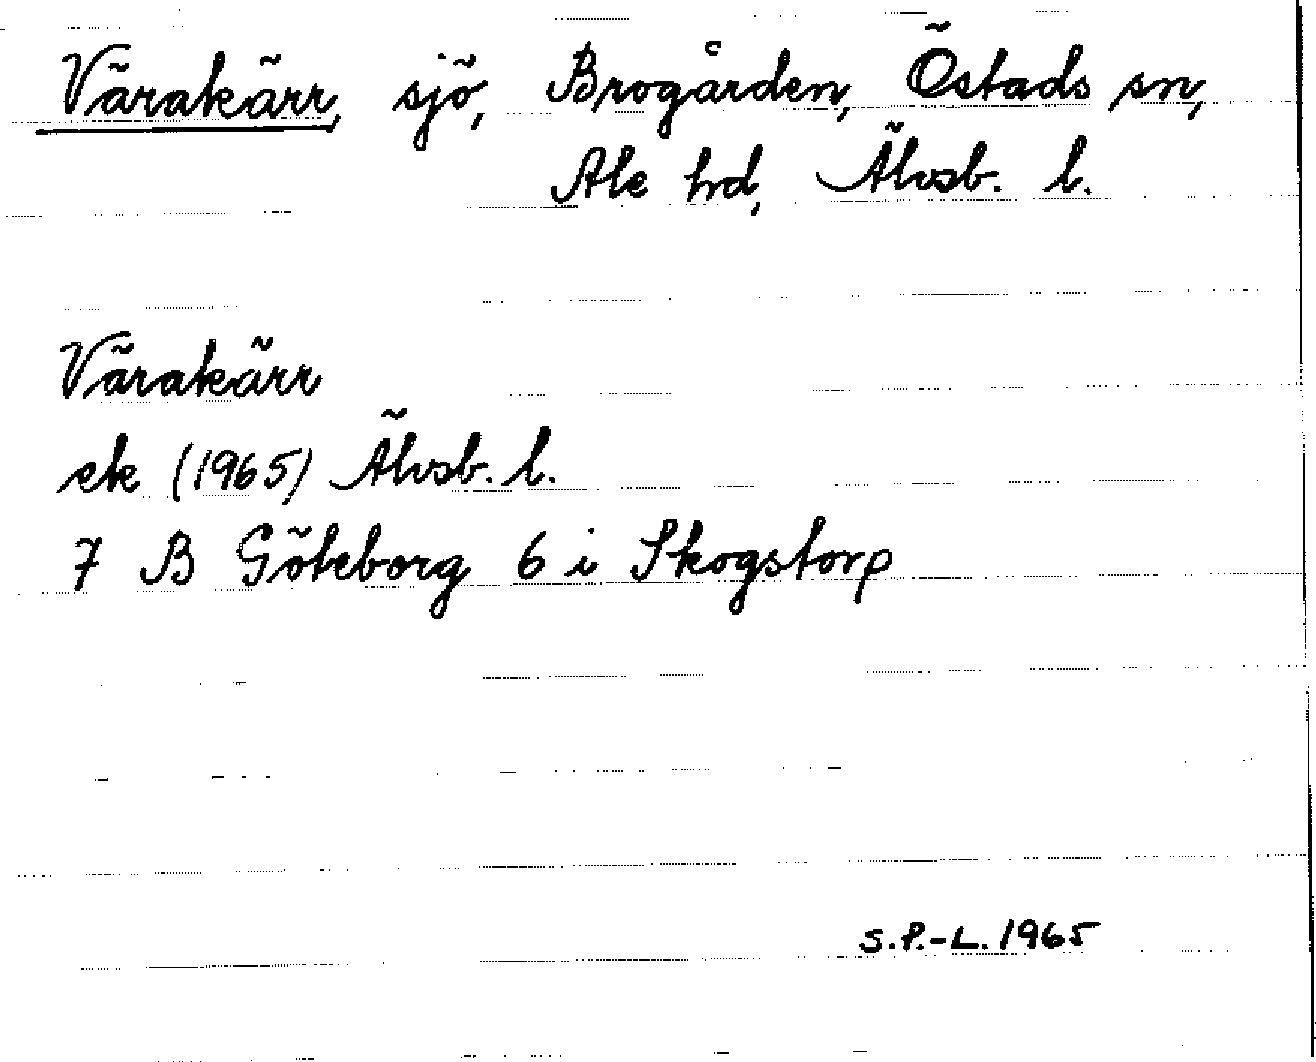 Värakärr, sjö, Brogården, Östads sn,
Ale hd, Älvsb. l.
Värakärr
ek (1965) Älvsb. l.
7 B Göteborg 6 i Skogstorp
S.P.-L. 1965